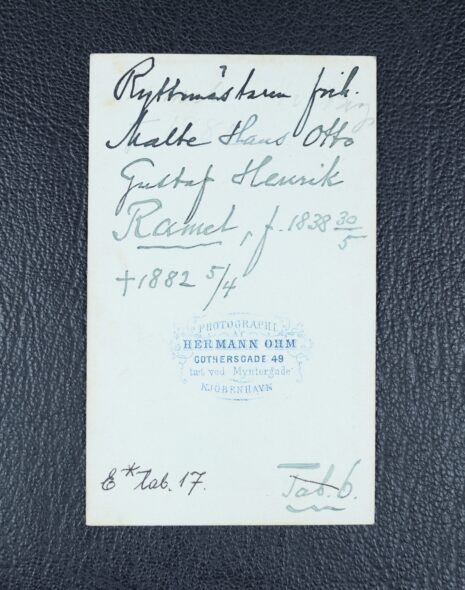 Ryttmästaren frih.
Malte Hans Otto
Gustaf Henrik
Ramel, f. 1838 30/5
†1882 5/4
PHOTOGRAPHI
AF
HERMANN OHM
GOTHERSGADE 49
tæt ved Myntergade
KJÖBENHAVN
E* tab. 17.
Tab. 6.